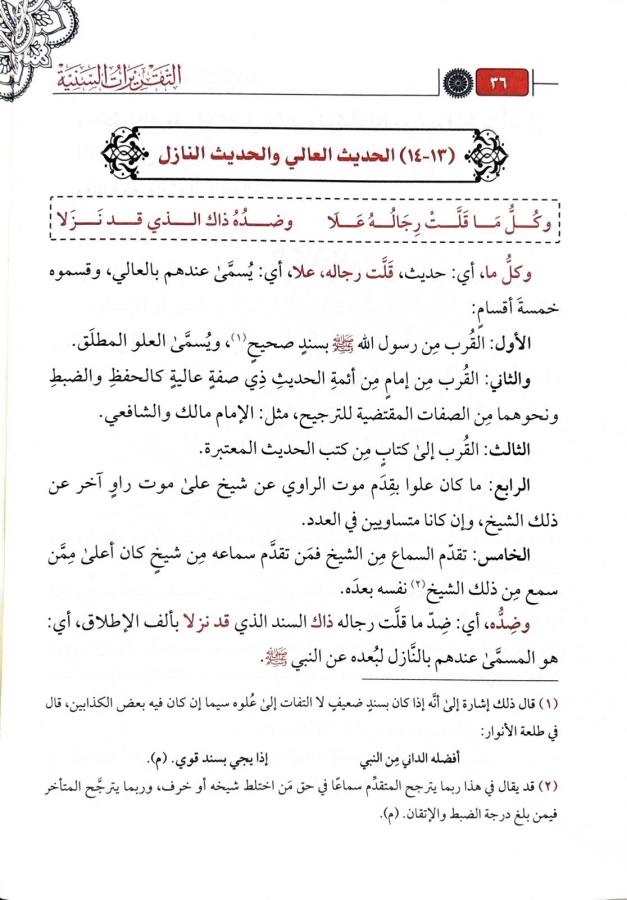 التقريرات السنية
٣٦
(١٣-١٤) الحديث العالي والحديث النازل
وَكُلُّ مَا قَلَّتْ رِجَالُهُ عَلَا وَضِدُهُ ذاك الذي قد نَزَلا
وكلُّ ما، أي: حديث، قَلَّت رجاله، علا، أي: يُسمَّىٰ عندهم بالعالي، وقسموه
خمسةَ أقسامٍ:
الأول: القُرب مِن رسول الله ﷺ بسندٍ صحيحٍ(١)، ويُسمَّىٰ العلو المطلَق.
والثاني: القُرب مِن إمامٍ مِن أئمةِ الحديثِ ذِي صفةٍ عاليةٍ كالحفظِ والضبطِ
ونحوهما مِن الصفات المقتضية للترجيح، مثل: الإمام مالك والشافعي.
الثالث: القُرب إلىٰ كتابٍ مِن كتب الحديث المعتبرة.
الرابع: ما كان علوا بقِدَم موت الراوي عن شيخ علىٰ موت راوٍ آخر عن
ذلك الشيخ، وإن كانا متساويين في العدد.
الخامس: تقدّم السماع مِن الشيخ فمَن تقدَّم سماعه مِن شيخٍ كان أعلىٰ مِمَّن
سمع مِن ذلك الشيخ(٢) نفسه بعدَه.
وضِدُّه، أي: ضِدّ ما قلَّت رجاله ذاك السند الذي قد نزلا بألف الإطلاق، أي:
هو المسمَّىٰ عندهم بالنَّازل لبُعده عن النبي ﷺ.
(١) قال ذلك إشارة إلىٰ أنَّه إذا كان بسندٍ ضعيفٍ لا التفات إلىٰ عُلوه سيما إن كان فيه بعض الكذابين، قال
في طلعة الأنوار:
أفضله الداني مِن النبي إذا يجي بسند قوي. (م).
(٢) قد يقال في هذا ربما يترجح المتقدِّم سماعًا في حق مَن اختلط شيخه أو خرف، وربما يترجَّح المتأخر
فيمن بلغ درجة الضبط والإتقان. (م).